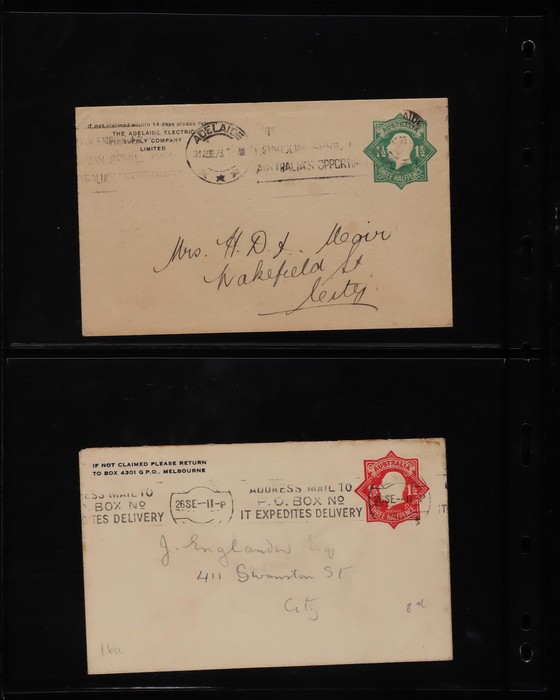 If not claimed within 14 days please
THE ADELAIDE ELECTRIC
SUPPLY COMPANY
LIMITED
ADELAIDE
AUSTRALIA'S
AIDE
AUSTRALIA
1½ 1½
THREE HALFPENCE
Mrs. H. D. Moir
Wakefield St
City
IF NOT CLAIMED PLEASE RETURN
TO BOX 4301 G P.O., MELBOURNE
ESS MAIL TO
BOX No
DITES DELIVERY
26SE--11-P
ADDRESS MAIL TO
P.O. BOX No
IT EXPEDITES DELIVERY
26SE--11-P
AUSTRALIA
1½
THREE HALFPENCE
J. Englander Esq
411 Swanston St
City
16a